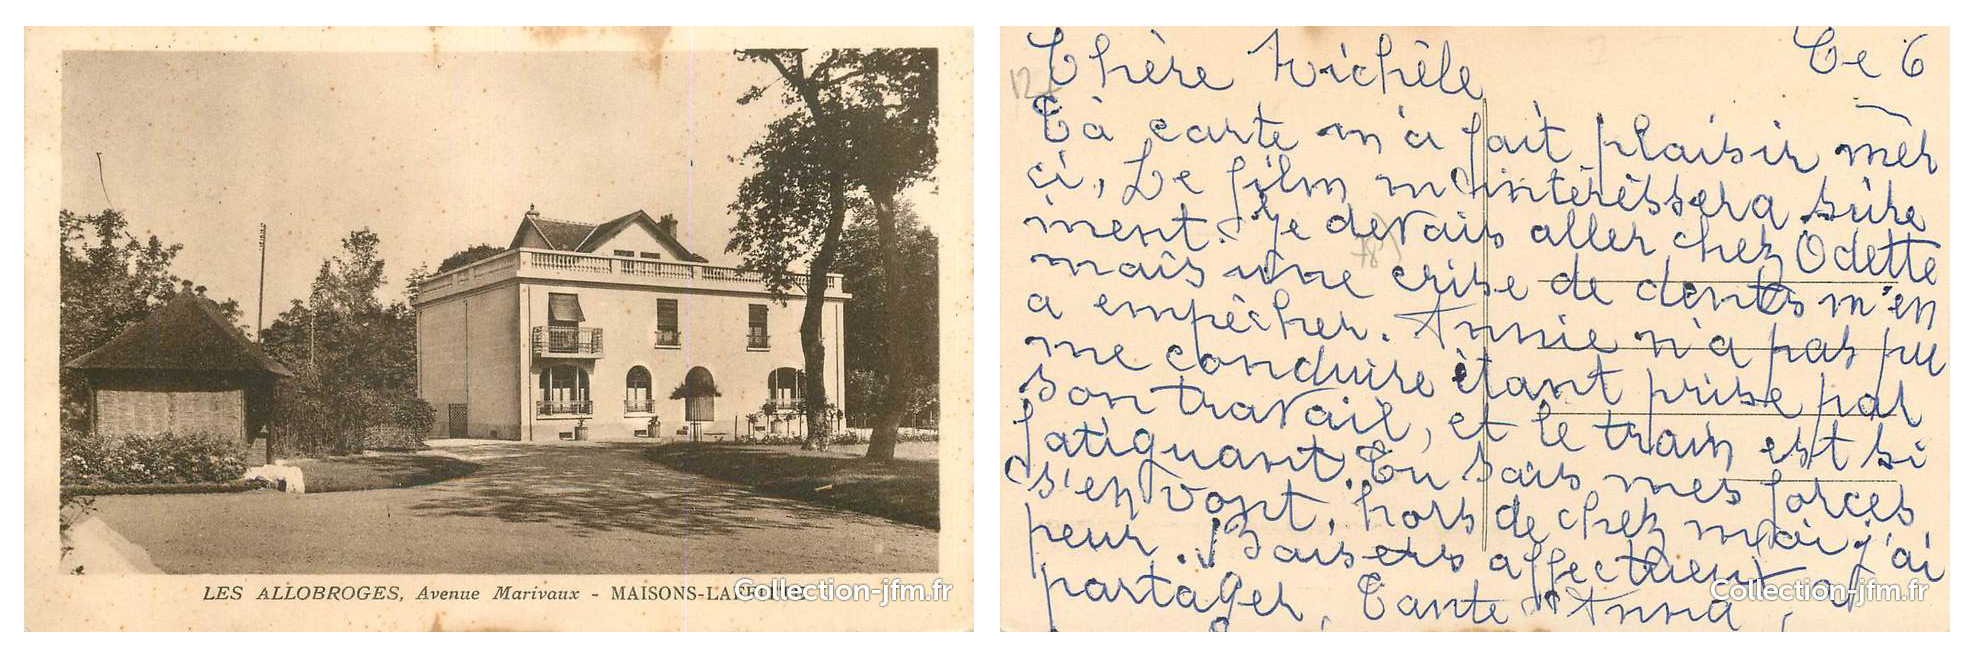 LES ALLOBROGES, Avenue Marivaux - MAISONS-LAFFITTE
Collection-jfm.fr
Chère Michèle Le 6
Ta carte m'a fait plaisir mer
ci, Le film m'intéressera sûre
ment. Je devais aller chez Odette
mais une crise de dents m'en
a empêcher. Annie n'a pas pu
me conduire étant prise par
son travail, et le train est si
fatiguant. Tu sais mes forces
s'en vont, hors de chez moi j'ai
peur. Baisers affectueux a
partager, Tante Anna,
Collection-jfm.fr